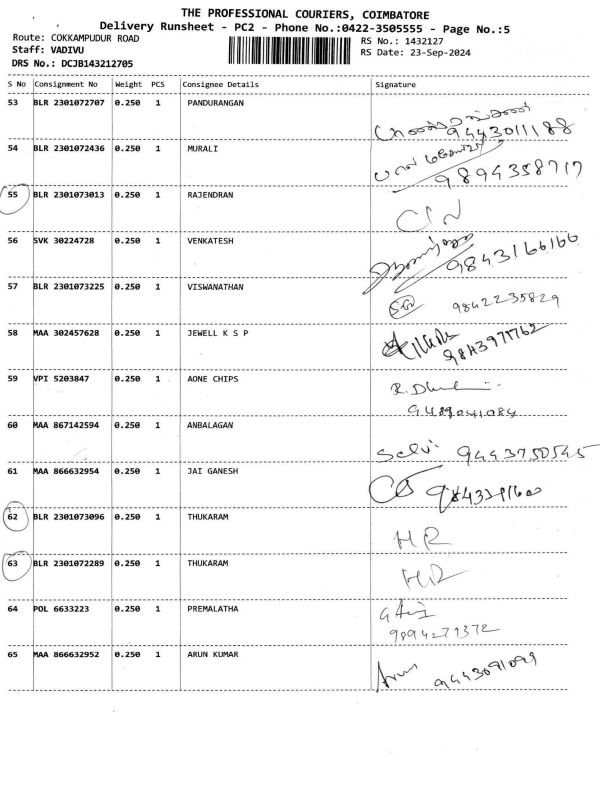 THE PROFESSIONAL COURIERS, COIMBATORE
Delivery Runsheet - PC2 - Phone No.:0422-3505555 - Page No.:5
Route: COKKAMPUDUR ROAD
RS No.: 1432127
Staff: VADIVU
RS Date: 23-Sep-2024
DRS No.: DCJB143212705
S No Consignment No Weight PCS Consignee Details Signature
53 BLR 2301072707 0.250 1 PANDURANGAN
9443011188
54 BLR 2301072436 0.250 1 MURALI
9894358717
55 BLR 2301073013 0.250 1 RAJENDRAN
C/N
56 SVK 30224728 0.250 1 VENKATESH
9843166166
57 BLR 2301073225 0.250 1 VISWANATHAN
9842235829
58 MAA 302457628 0.250 1 JEWELL K S P
59 VPI 5203847 0.250 1 AONE CHIPS
9489041084
60 MAA 867142594 0.250 1 ANBALAGAN
Selvi 9443750545
61 MAA 866632954 0.250 1 JAI GANESH
62 BLR 2301073096 0.250 1 THUKARAM
HR
63 BLR 2301072289 0.250 1 THUKARAM
HR
64 POL 6633223 0.250 1 PREMALATHA
9894277372
65 MAA 866632952 0.250 1 ARUN KUMAR
Arun 9443091099